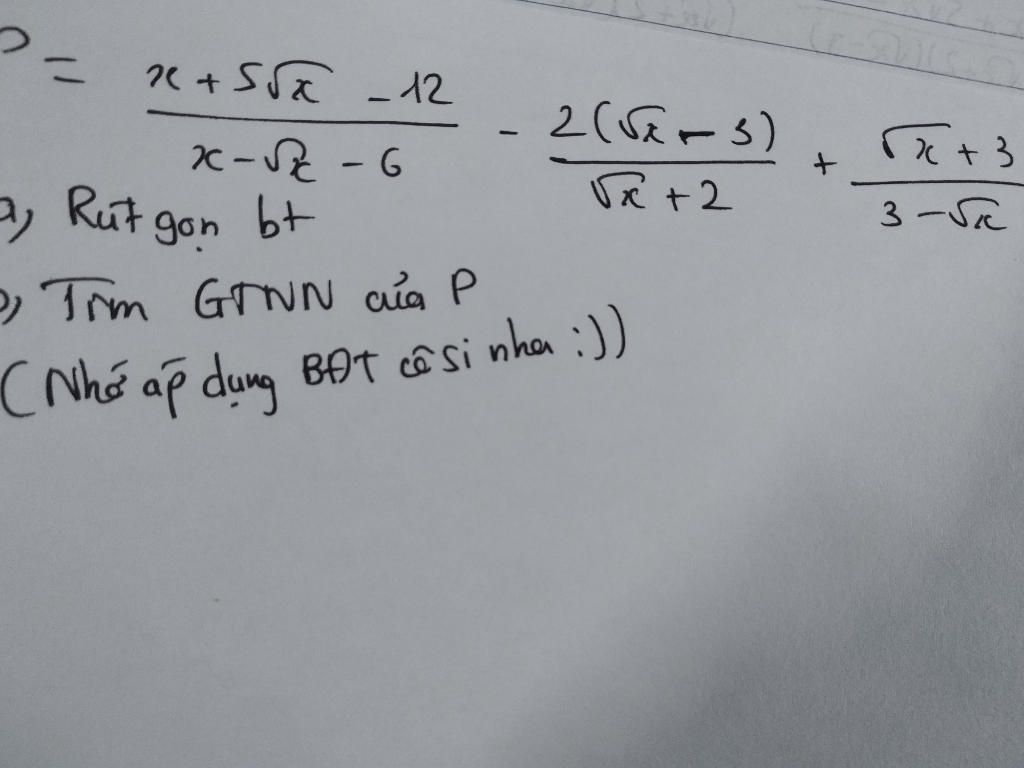 P = (x + 5√x - 12)/(x - √x - 6) - 2(√x - 3)/(√x + 2) + (√x + 3)/(3 - √x)
a, Rút gọn bt
b, Tìm GTNN của P
(Nhớ áp dụng BĐT cô si nha :))